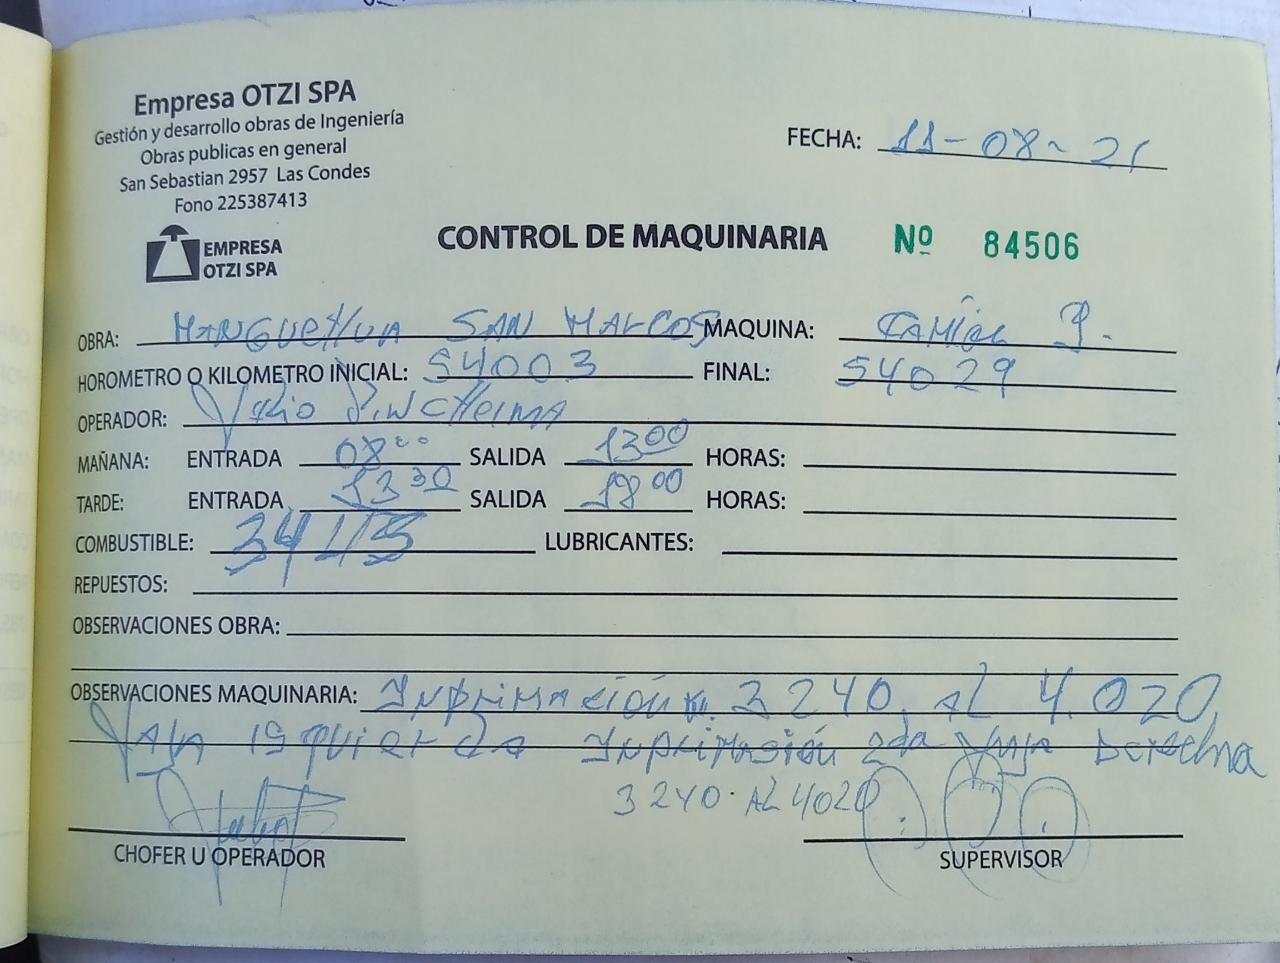 Empresa OTZI SPA
Gestión y desarrollo obras de Ingeniería
Obras publicas en general
San Sebastian 2957 Las Condes
Fono 225387413
EMPRESA
OTZI SPA
FECHA: 11-08-21
CONTROL DE MAQUINARIA Nº 84506
OBRA: SAN MARCOS MAQUINA: CAMIÓN
HOROMETRO O KILOMETRO INICIAL: 54003 FINAL: 54029
OPERADOR:
MAÑANA: ENTRADA 08 00 SALIDA 13 00 HORAS:
TARDE: ENTRADA 13 30 SALIDA 18 00 HORAS:
COMBUSTIBLE: LUBRICANTES:
REPUESTOS:
OBSERVACIONES OBRA:
OBSERVACIONES MAQUINARIA: Inprimación 3240 AL 4.020
2da Derecha
3240 · AL 4020
CHOFER U OPERADOR
SUPERVISOR